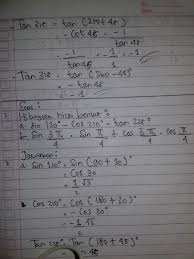 - Tan 315 = tan (270 + 45)
= - cot 45 = - 1
tan 45
= - 1 = - 1 = - 1
tan 45 1
- Tan 315 = tan (360 - 45)°
= - tan 45
= - 1
Soal :
Hitunglah nilai berikut :
a sin 120° - Cos 210° - tan 225°
b Sin 3π/4 . Sin π/4 + Cos 3π/4 . Cos π/4
Jawaban :
a Sin 120°, Sin (90 + 30)°
= Cos 30
= 1/2 √3
Cos 210°, Cos (180 + 30)°
= - Cos 30°
= - 1/2 √3
Tan 225°, Tan (180 + 45)°